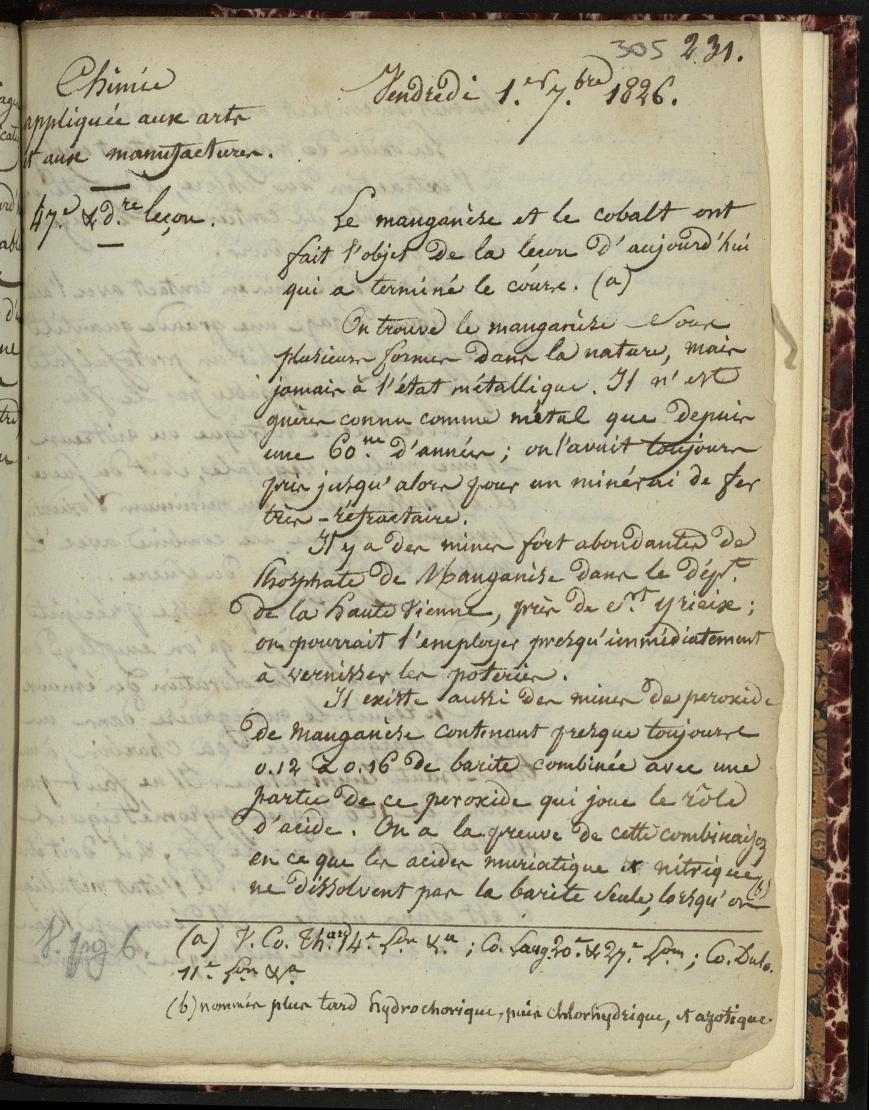 305 231.
Chimie
appliquée aux arts
et aux manufactures.
Vendredi 1.er 7.bre 1826.
47.e & d.re leçon.
Le manganèse et le cobalt ont
fait l'objet de la leçon d'aujourd'hui
qui a terminé le cours. (a)
On trouve le manganèse sous
plusieurs formes dans la nature, mais
jamais à l'état métallique. Il n'est
guères connu comme métal que depuis
une 60.ne d'années ; on l'avait toujours
pris jusqu'alors pour un minérai de fer
très-réfractaire.
Il y a des mines fort abondantes de
Phosphate de Manganèse dans le Dép.t
de la haute Vienne, près de St yrieix ;
on pourrait l'employer presqu'immédiatement
à vernisser les poteries.
Il existe aussi des mines de peroxide
de manganèse contenant presque toujours
0.12 à 0.16 de barite combinée avec une
partie de ce peroxide qui joue le rôle
d'acide. On a la preuve de cette combinaison
en ce que les acides muriatique & nitrique (b)
ne dissolvent pas la barite seule, lorsqu'on
(a) V. Co. Thard 14e Lon &a ; Co. Laug 20e & 27e Lons ; Co. Dulo.
11e Lon &a
(b) nommés plus tard hydrochorique, puis chlorhydrique, et azotique
V. pg 6.